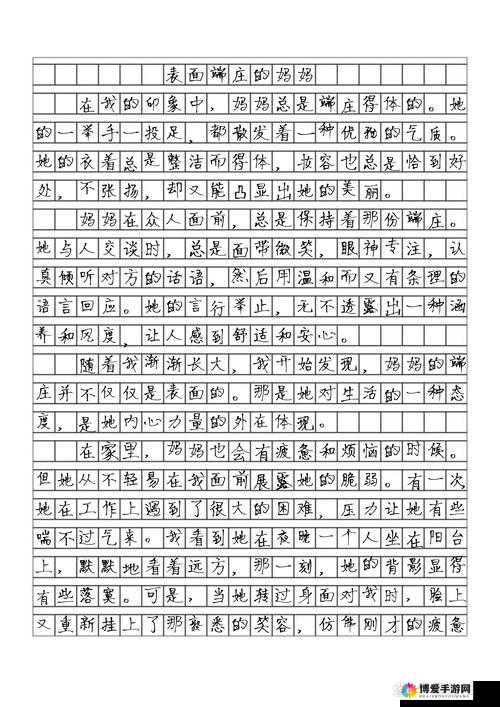 表面端庄的妈妈
在我的印象中，妈妈总是端庄得体的。她
的一举手一投足，都散发着一种优雅的气质。
她的衣着总是整洁而得体，妆容也总是恰到好
处，不张扬，却又能凸显出她的美丽。
妈妈在众人面前，总是保持着那份端庄。
她与人交谈时，总是面带微笑，眼神专注，认
真倾听对方的话语，然后用温和而又有条理的
语言回应。她的言行举止，无不透露出一种涵
养和风度，让人感到舒适和安心。
随着我渐渐长大，我开始发现，妈妈的端
庄并不仅仅是表面的。那是她对生活的一种态
度，是她内心力量的外在体现。
在家里，妈妈也会有疲惫和烦恼的时候。
但她从不轻易在我面前展露她的脆弱。有一次，
她在工作上遇到了很大的困难，压力让她有些
喘不过气来。我看到她在夜晚一个人坐在阳台
上，默默地看着远方，那一刻，她的背影显得
有些落寞。可是，当她转过身面对我时，脸上
又重新挂上了那熟悉的笑容，仿佛刚才的疲惫
博爱手游网